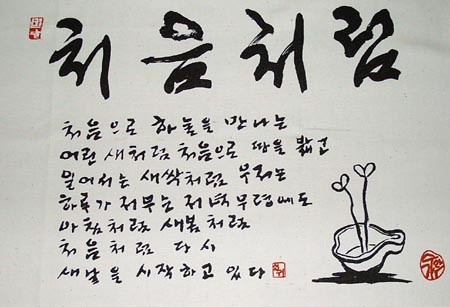 처음처럼
처음으로 하늘을 만나는
어린 새처럼 처음으로 땅을 밟고
일어서는 새싹처럼 우리는
하루가 저무는 저녁무렵에도
아침처럼 새봄처럼
처음처럼 다시
새날을 시작하고 있다